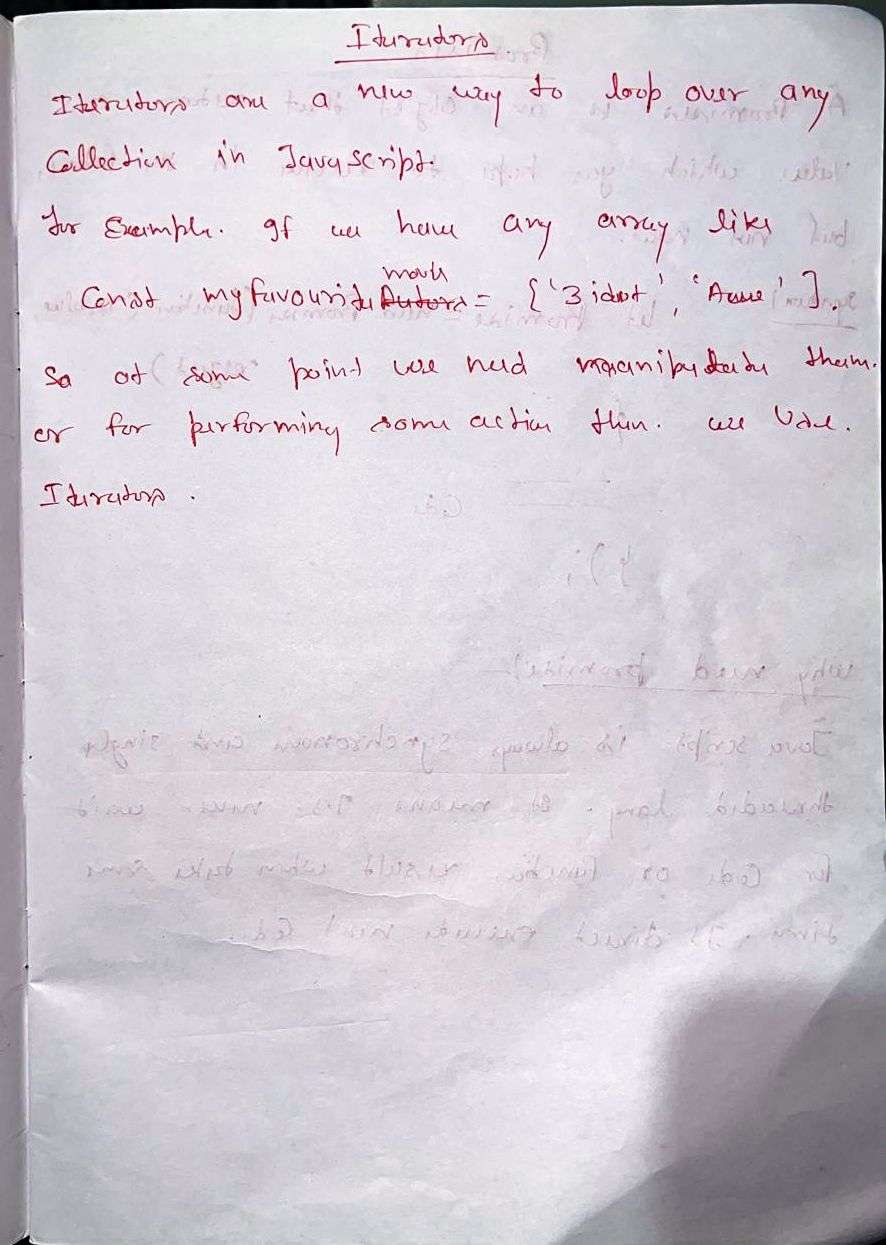 Iterators
Iterators are a new way to loop over any
Collection in Javascript.
for Example. If we have any array like
movie
Const myfavourite Autors = ['3 idot', ' '].
So at some point we need manipulate them.
or for performing some action then. we Use.
Iterators.